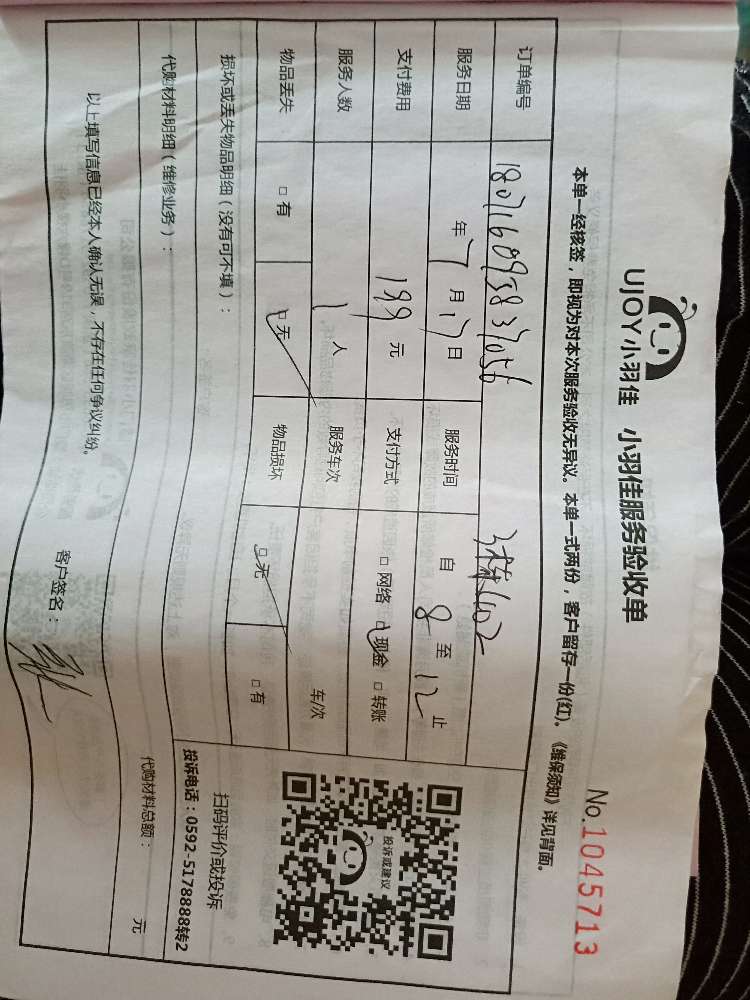 UJOY小羽佳 小羽佳服务验收单
No.1045713
本单一经核签，即视为对本次服务验收无异议。本单一式两份，客户留存一份(红)。《维保须知》详见背面。
订单编号 180716093837056
服务日期 年 7 月 17 日 服务时间 自 8 至 12 止
支付费用 199 元 支付方式 □ 网络 □ 现金 □ 转账
服务人数 1 人 服务车次 车/次
物品丢失 □ 有 □ 无 物品损坏 □ 无 □ 有
投诉或建议
扫码评价或投诉
投诉电话：0592-5178888转2
损坏或丢失物品明细（没有可不填）：
代购材料明细（维修业务）：
代购材料总额： 元
以上填写信息已经本人确认无误，不存在任何争议纠纷。
客户签名：